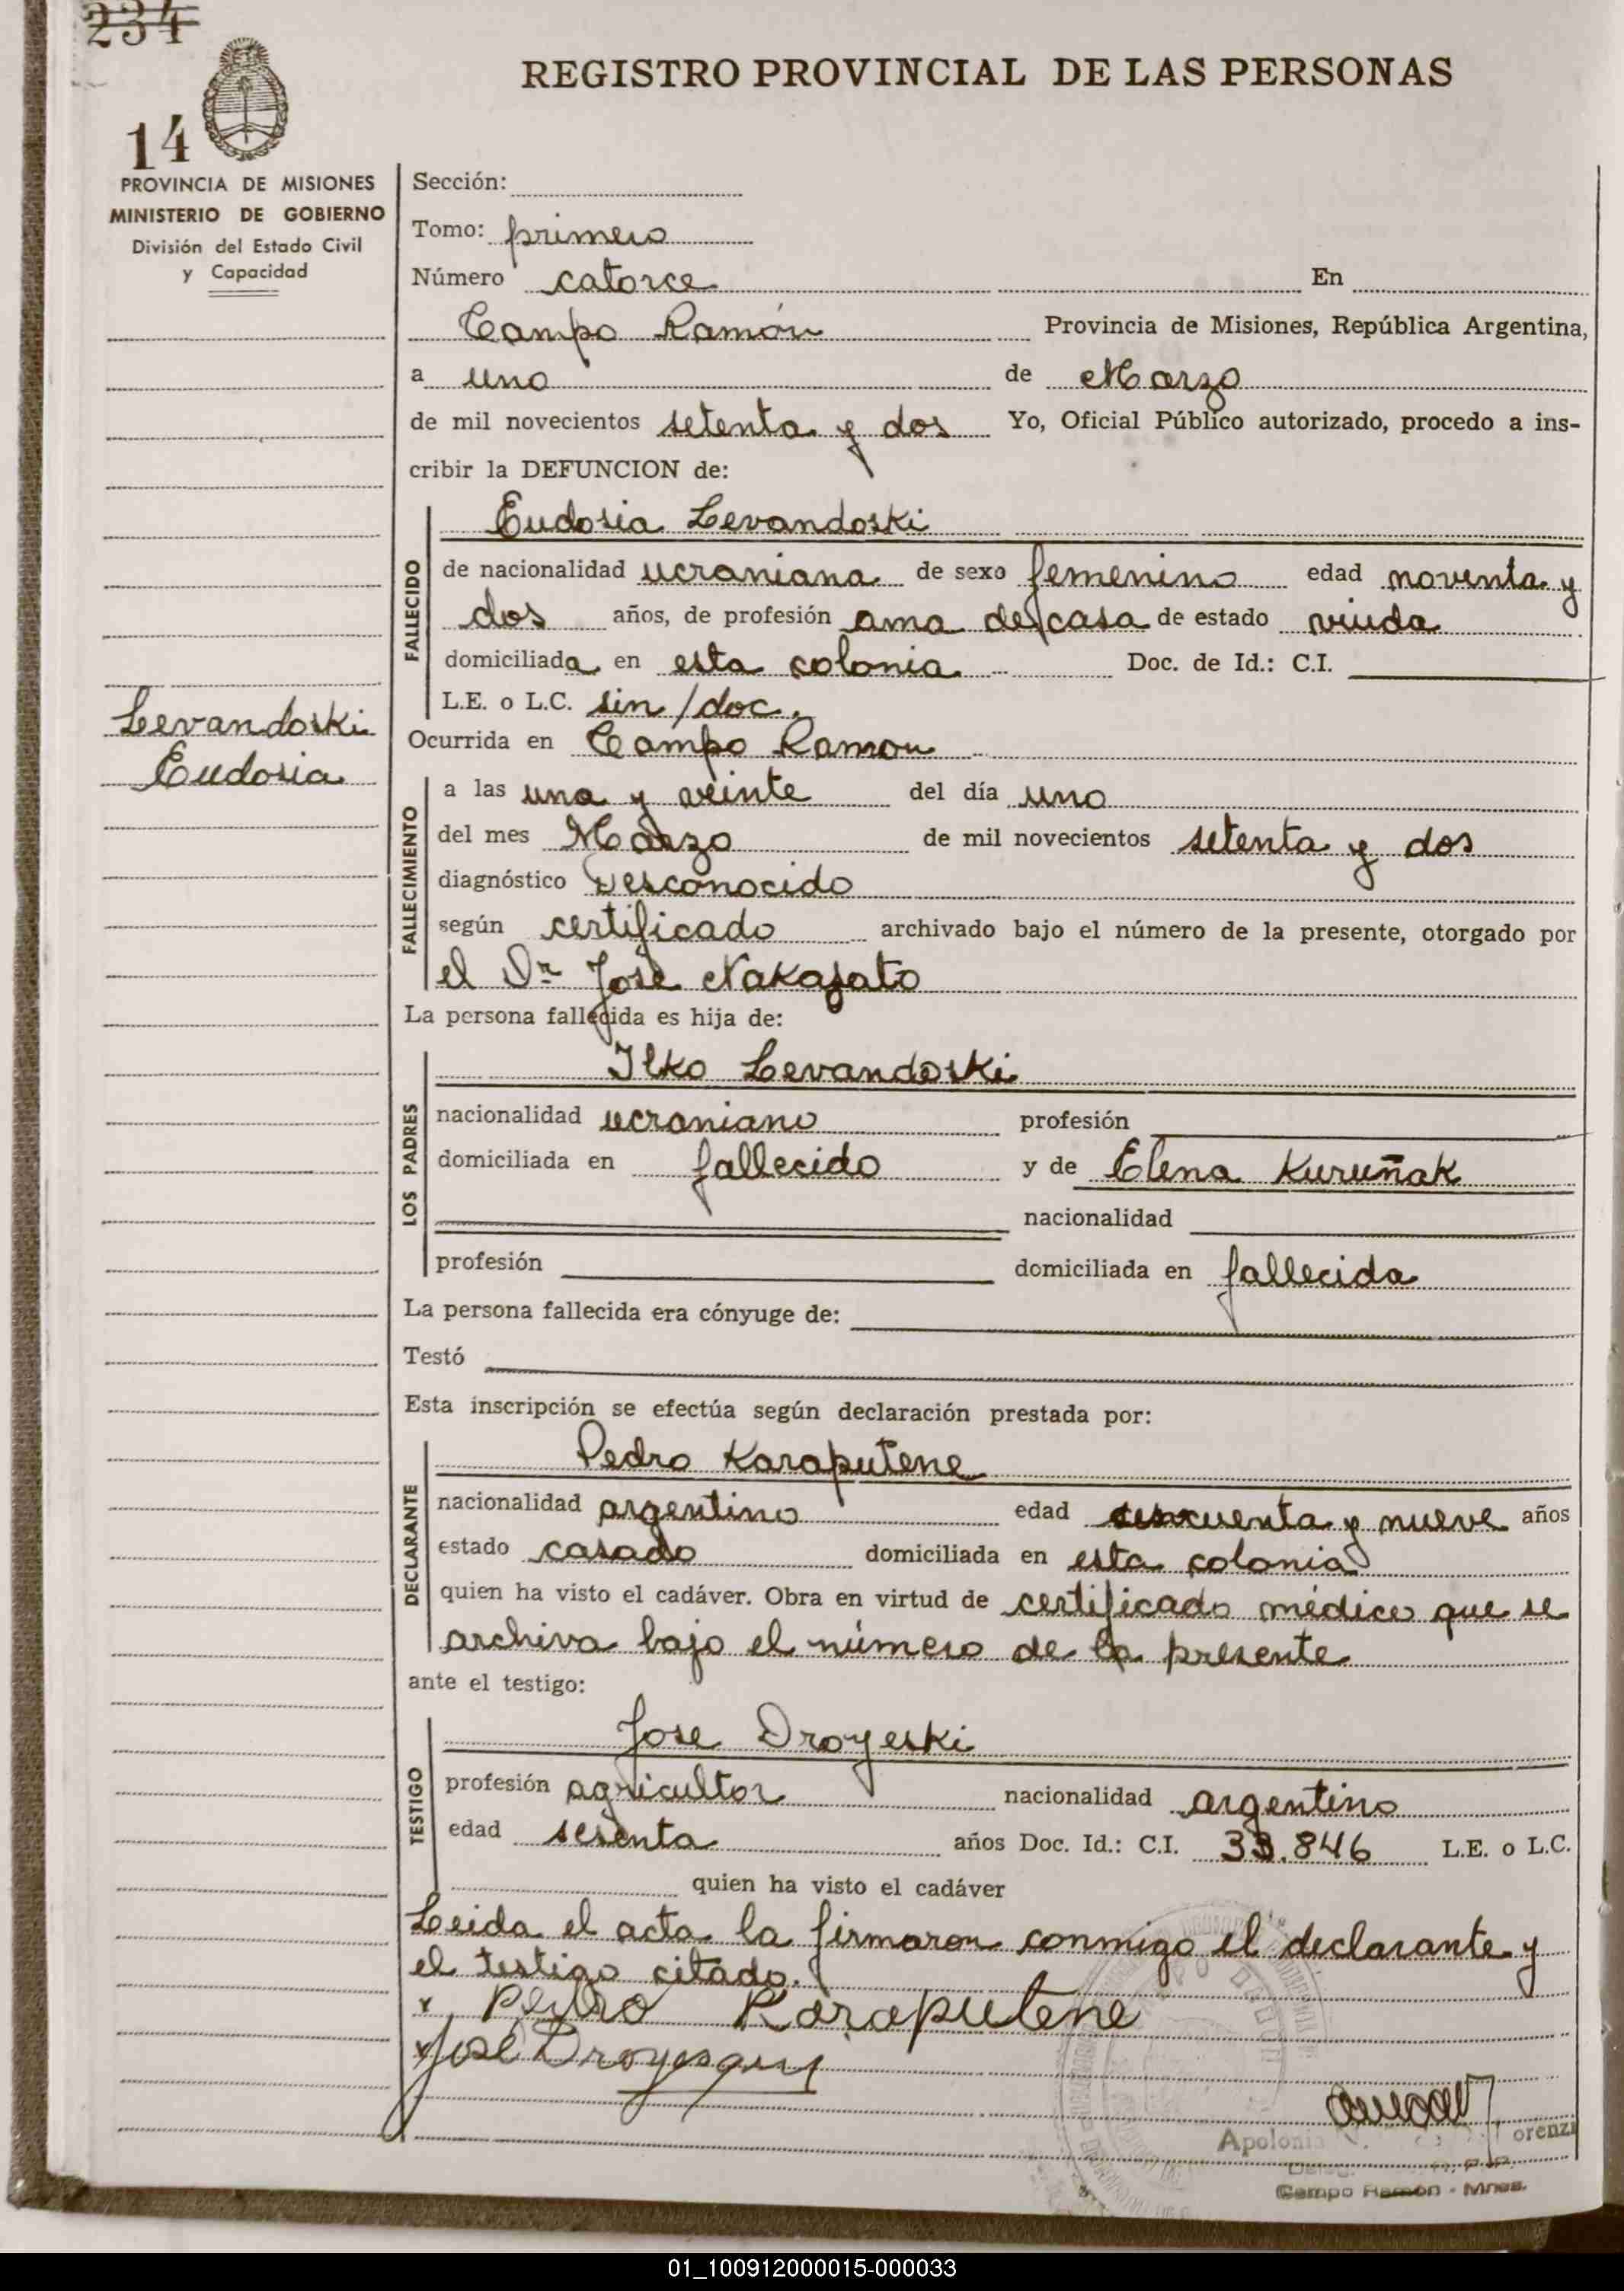 234
14
REGISTRO PROVINCIAL DE LAS PERSONAS
PROVINCIA DE MISIONES
MINISTERIO DE GOBIERNO
División del Estado Civil
y Capacidad
Levandoski
Eudosia
Sección:
Tomo: primero
Número catorce En
Campo Ramón Provincia de Misiones, República Argentina,
a uno de Marzo
de mil novecientos setenta y dos Yo, Oficial Público autorizado, procedo a ins-
cribir la DEFUNCION de:
FALLECIDO
Eudosia Levandoski
de nacionalidad ucraniana de sexo femenino edad noventa y
dos años, de profesión ama de casa de estado viuda
domiciliada en esta colonia Doc. de Id.: C.I.
L.E. o L.C. sin/doc.
Ocurrida en Campo Ramon
FALLECIMIENTO
a las una y veinte del día uno
del mes Marzo de mil novecientos setenta y dos
diagnóstico Desconocido
según certificado archivado bajo el número de la presente, otorgado por
el Dr José Nakasato
La persona fallecida es hija de:
LOS PADRES
Ilko Levandoski
nacionalidad ucraniano profesión
domiciliada en fallecido y de Elena Kuruñak
nacionalidad
profesión domiciliada en fallecida
La persona fallecida era cónyuge de:
Testó
Esta inscripción se efectúa según declaración prestada por:
DECLARANTE
Pedro Karaputene
nacionalidad argentino edad cincuenta y nueve años
estado casado domiciliada en esta colonia
quien ha visto el cadáver. Obra en virtud de certificado médico que se
archiva bajo el número de la presente
ante el testigo:
TESTIGO
Jose Droyeski
profesión agricultor nacionalidad argentino
edad sesenta años Doc. Id.: C.I. 33.846 L.E. o L.C.
quien ha visto el cadáver
Leida el acta la firmaron conmigo el declarante y
el testigo citado.
Pedro Karaputene
José Droyesquy
Apolonia orenzi
Campo Ramon - Mnes.
01_100912000015-000033